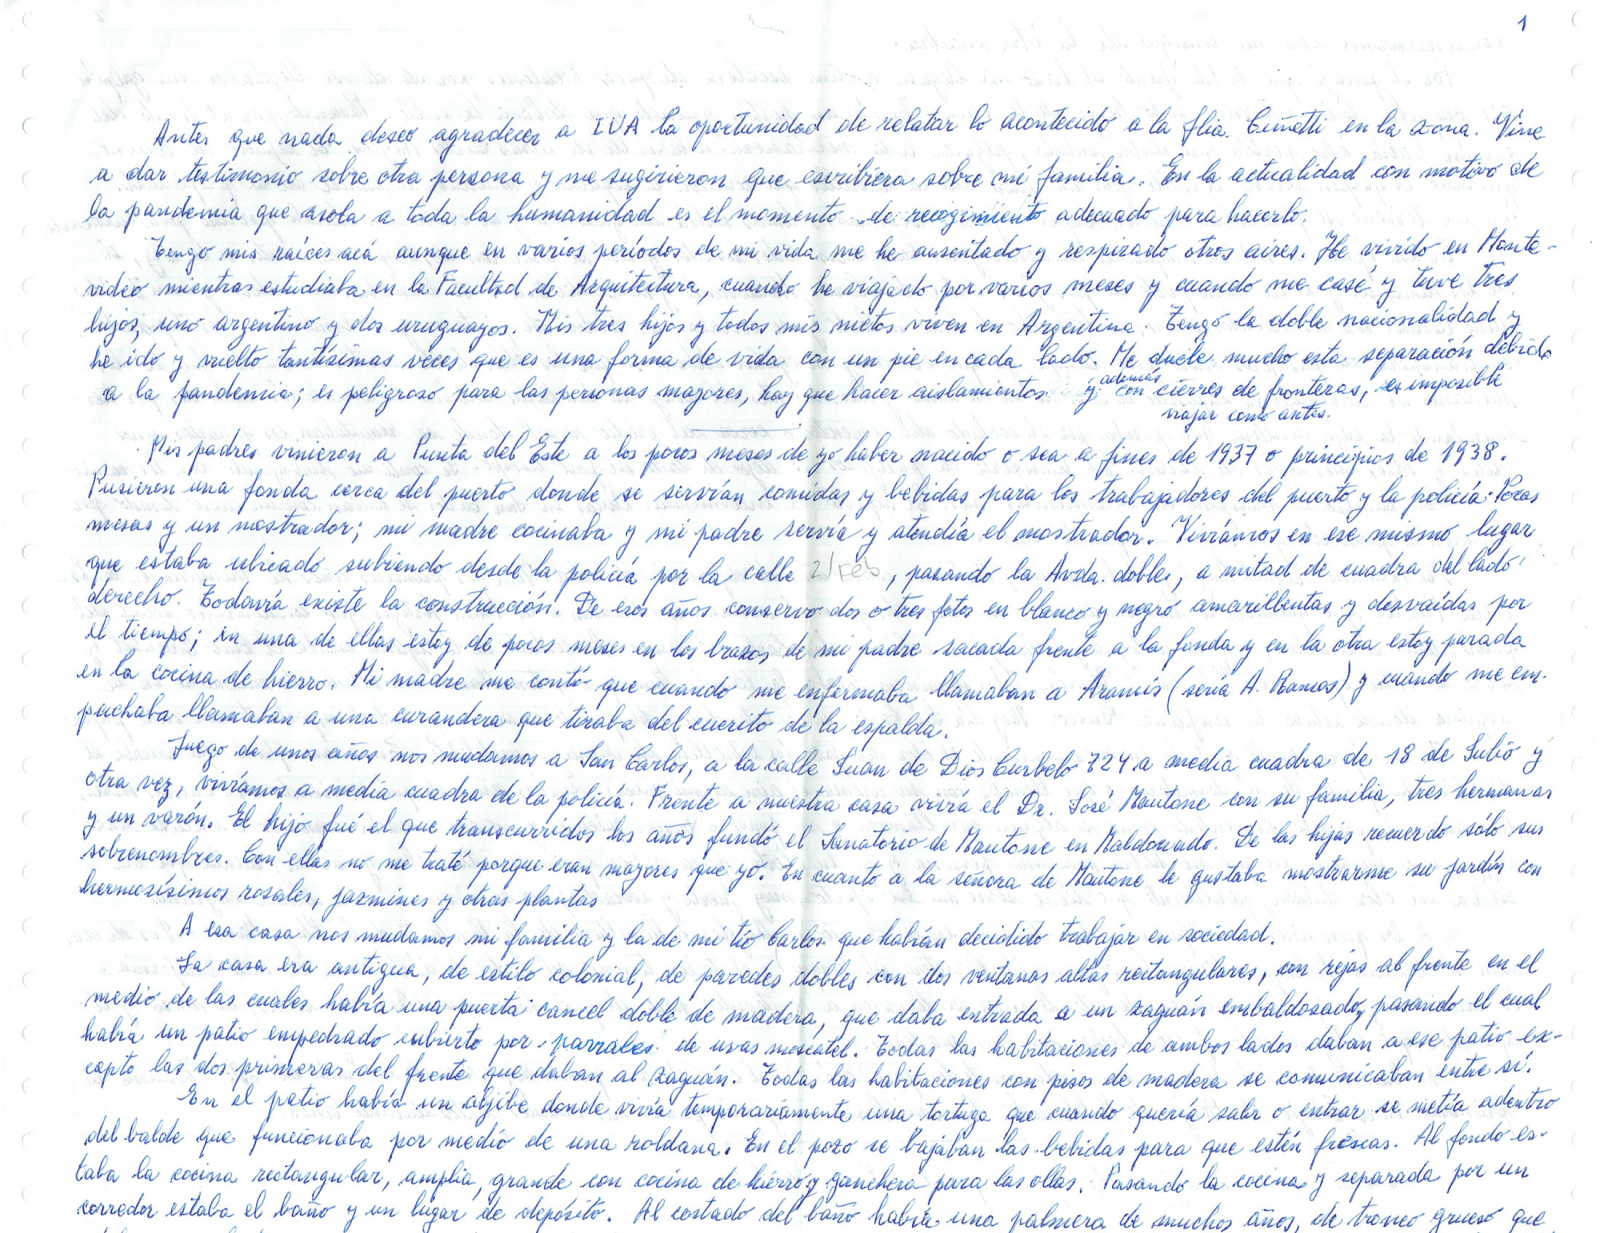 1
Antes que nada deseo agradecer a IVA la oportunidad de relatar lo acontecido a la flia. Cuñetti en la zona. Vine
a dar testimonio sobre otra persona y me sugirieron que escribiera sobre mi familia. En la actualidad con motivo de
la pandemia que asola a toda la humanidad es el momento de recogimiento adecuado para hacerlo.
Tengo mis raíces acá aunque en varios períodos de mi vida me he ausentado y respirado otros aires. He vivido en Monte-
video mientras estudiaba en la Facultad de Arquitectura, cuando he viajado por varios meses y cuando me casé y tuve tres
hijos, uno argentino y dos uruguayos. Mis tres hijos y todos mis nietos viven en Argentina. Tengo la doble nacionalidad y
he ido y vuelto tantísimas veces que es una forma de vida con un pie en cada lado. Me duele mucho esta separación debido
a la pandemia; es peligroso para las personas mayores, hay que hacer aislamientos y además con cierres de fronteras, es imposible
viajar como antes.
Mis padres vinieron a Punta del Este a los pocos meses de yo haber nacido o sea a fines de 1937 o principios de 1938.
Pusieron una fonda cerca del puerto donde se servían comidas y bebidas para los trabajadores del puerto y la policía. Pocas
mesas y un mostrador; mi madre cocinaba y mi padre servía y atendía el mostrador. Vivíamos en ese mismo lugar
que estaba ubicado subiendo desde la policía por la calle 2/Feb, pasando la Avda. doble, a mitad de cuadra del lado
derecho. Todavía existe la construcción. De esos años conservo dos o tres fotos en blanco y negro amarillentas y desvaídas por
el tiempo; en una de ellas estoy de pocos meses en los brazos de mi padre sacada frente a la fonda y en la otra estoy parada
en la cocina de hierro. Mi madre me contó que cuando me enfermaba llamaban a Aramís (sería A. Ramos) y cuando me em-
pachaba llamaban a una curandera que tiraba del cuerito de la espalda.
Luego de unos años nos mudamos a San Carlos, a la calle Juan de Dios Curbelo 724 a media cuadra de 18 de Julio y
otra vez, vivíamos a media cuadra de la policía. Frente a nuestra casa vivía el Dr. José Mautone con su familia, tres hermanas
y un varón. El hijo fué el que transcurridos los años fundó el Sanatorio de Mautone en Maldonado. De las hijas recuerdo sólo sus
sobrenombres. Con ellas no me traté porque eran mayores que yo. En cuanto a la señora de Mautone le gustaba mostrarme su jardín con
hermosísimos rosales, jazmines y otras plantas
A esa casa nos mudamos mi familia y la de mi tío Carlos que habían decidido trabajar en sociedad.
La casa era antigua, de estilo colonial, de paredes dobles con dos ventanas altas rectangulares, con rejas al frente en el
medio de las cuales había una puerta cancel doble de madera, que daba entrada a un zaguán embaldosado, pasando el cual
había un patio empedrado cubierto por parrales de uvas moscatel. Todas las habitaciones de ambos lados daban a ese patio ex-
cepto las dos primeras del frente que daban al zaguán. Todas las habitaciones con pisos de madera se comunicaban entre sí.
En el patio había un aljibe donde vivía temporariamente una tortuga que cuando quería salir o entrar se metía adentro
del balde que funcionaba por medio de una roldana. En el pozo se bajaban las bebidas para que estén frescas. Al fondo es-
taba la cocina rectangular, amplia, grande con cocina de hierro y ganchera para las ollas. Pasando la cocina y separada por un
corredor estaba el baño y un lugar de depósito. Al costado del baño había una palmera de muchos años, de tronco grueso que